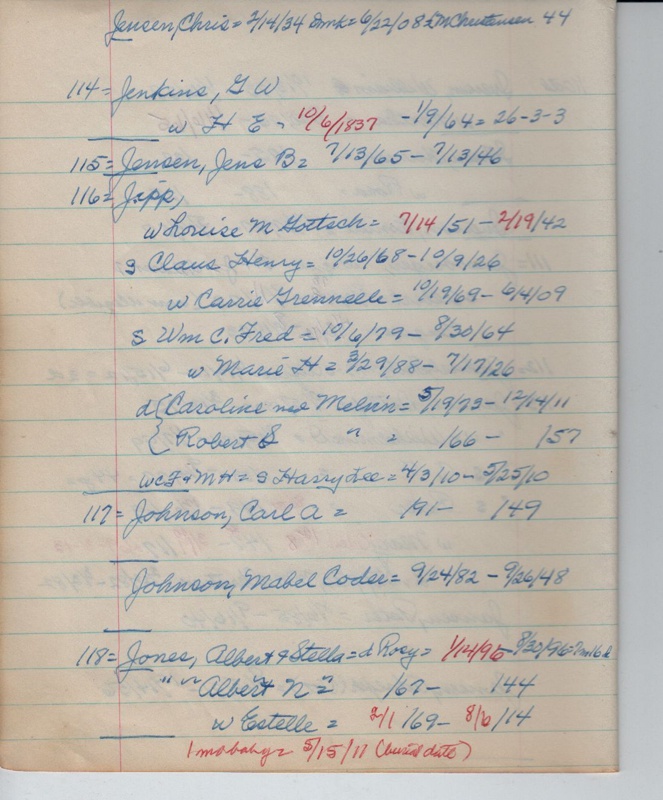 Jensen, Chris = 2/14/34 = 6/22/08 Christensen 44
114 = Jenkins, G W
w H E - 10/6/1837 - 1/9/64 = 26-3-3
115 = Jensen, Jens B = 7/13/65 - 7/13/46
116 = Jipp,
w Louise M Gottsch = 7/14/51 - 2/19/42
s Claus Henry = 10/26/68 - 10/9/26
w Carrie Grennelle = 10/19/69 - 6/4/09
s Wm C. Fred = 10/6/79 - 8/30/64
w Marie H = 3/29/88 - 7/17/26
d { Caroline Melvin = 5/19/73 - 12/14/11
{ Robert S " = /66 - /57
WCF & MH = s Harry Lee = 4/3/10 - 5/25/10
117 = Johnson, Carl A = /91 - /49
Johnson, Mabel Coder = 9/24/82 - 9/26/48
118 = Jones, Albert & Stella = d Rosy = 1/14/96 - 8/30/96 = 7m16d
" " Albert N = /67 - /44
w Estelle = 2/1/69 - 8/6/14
1 mo baby = 5/15/11 (burial date)